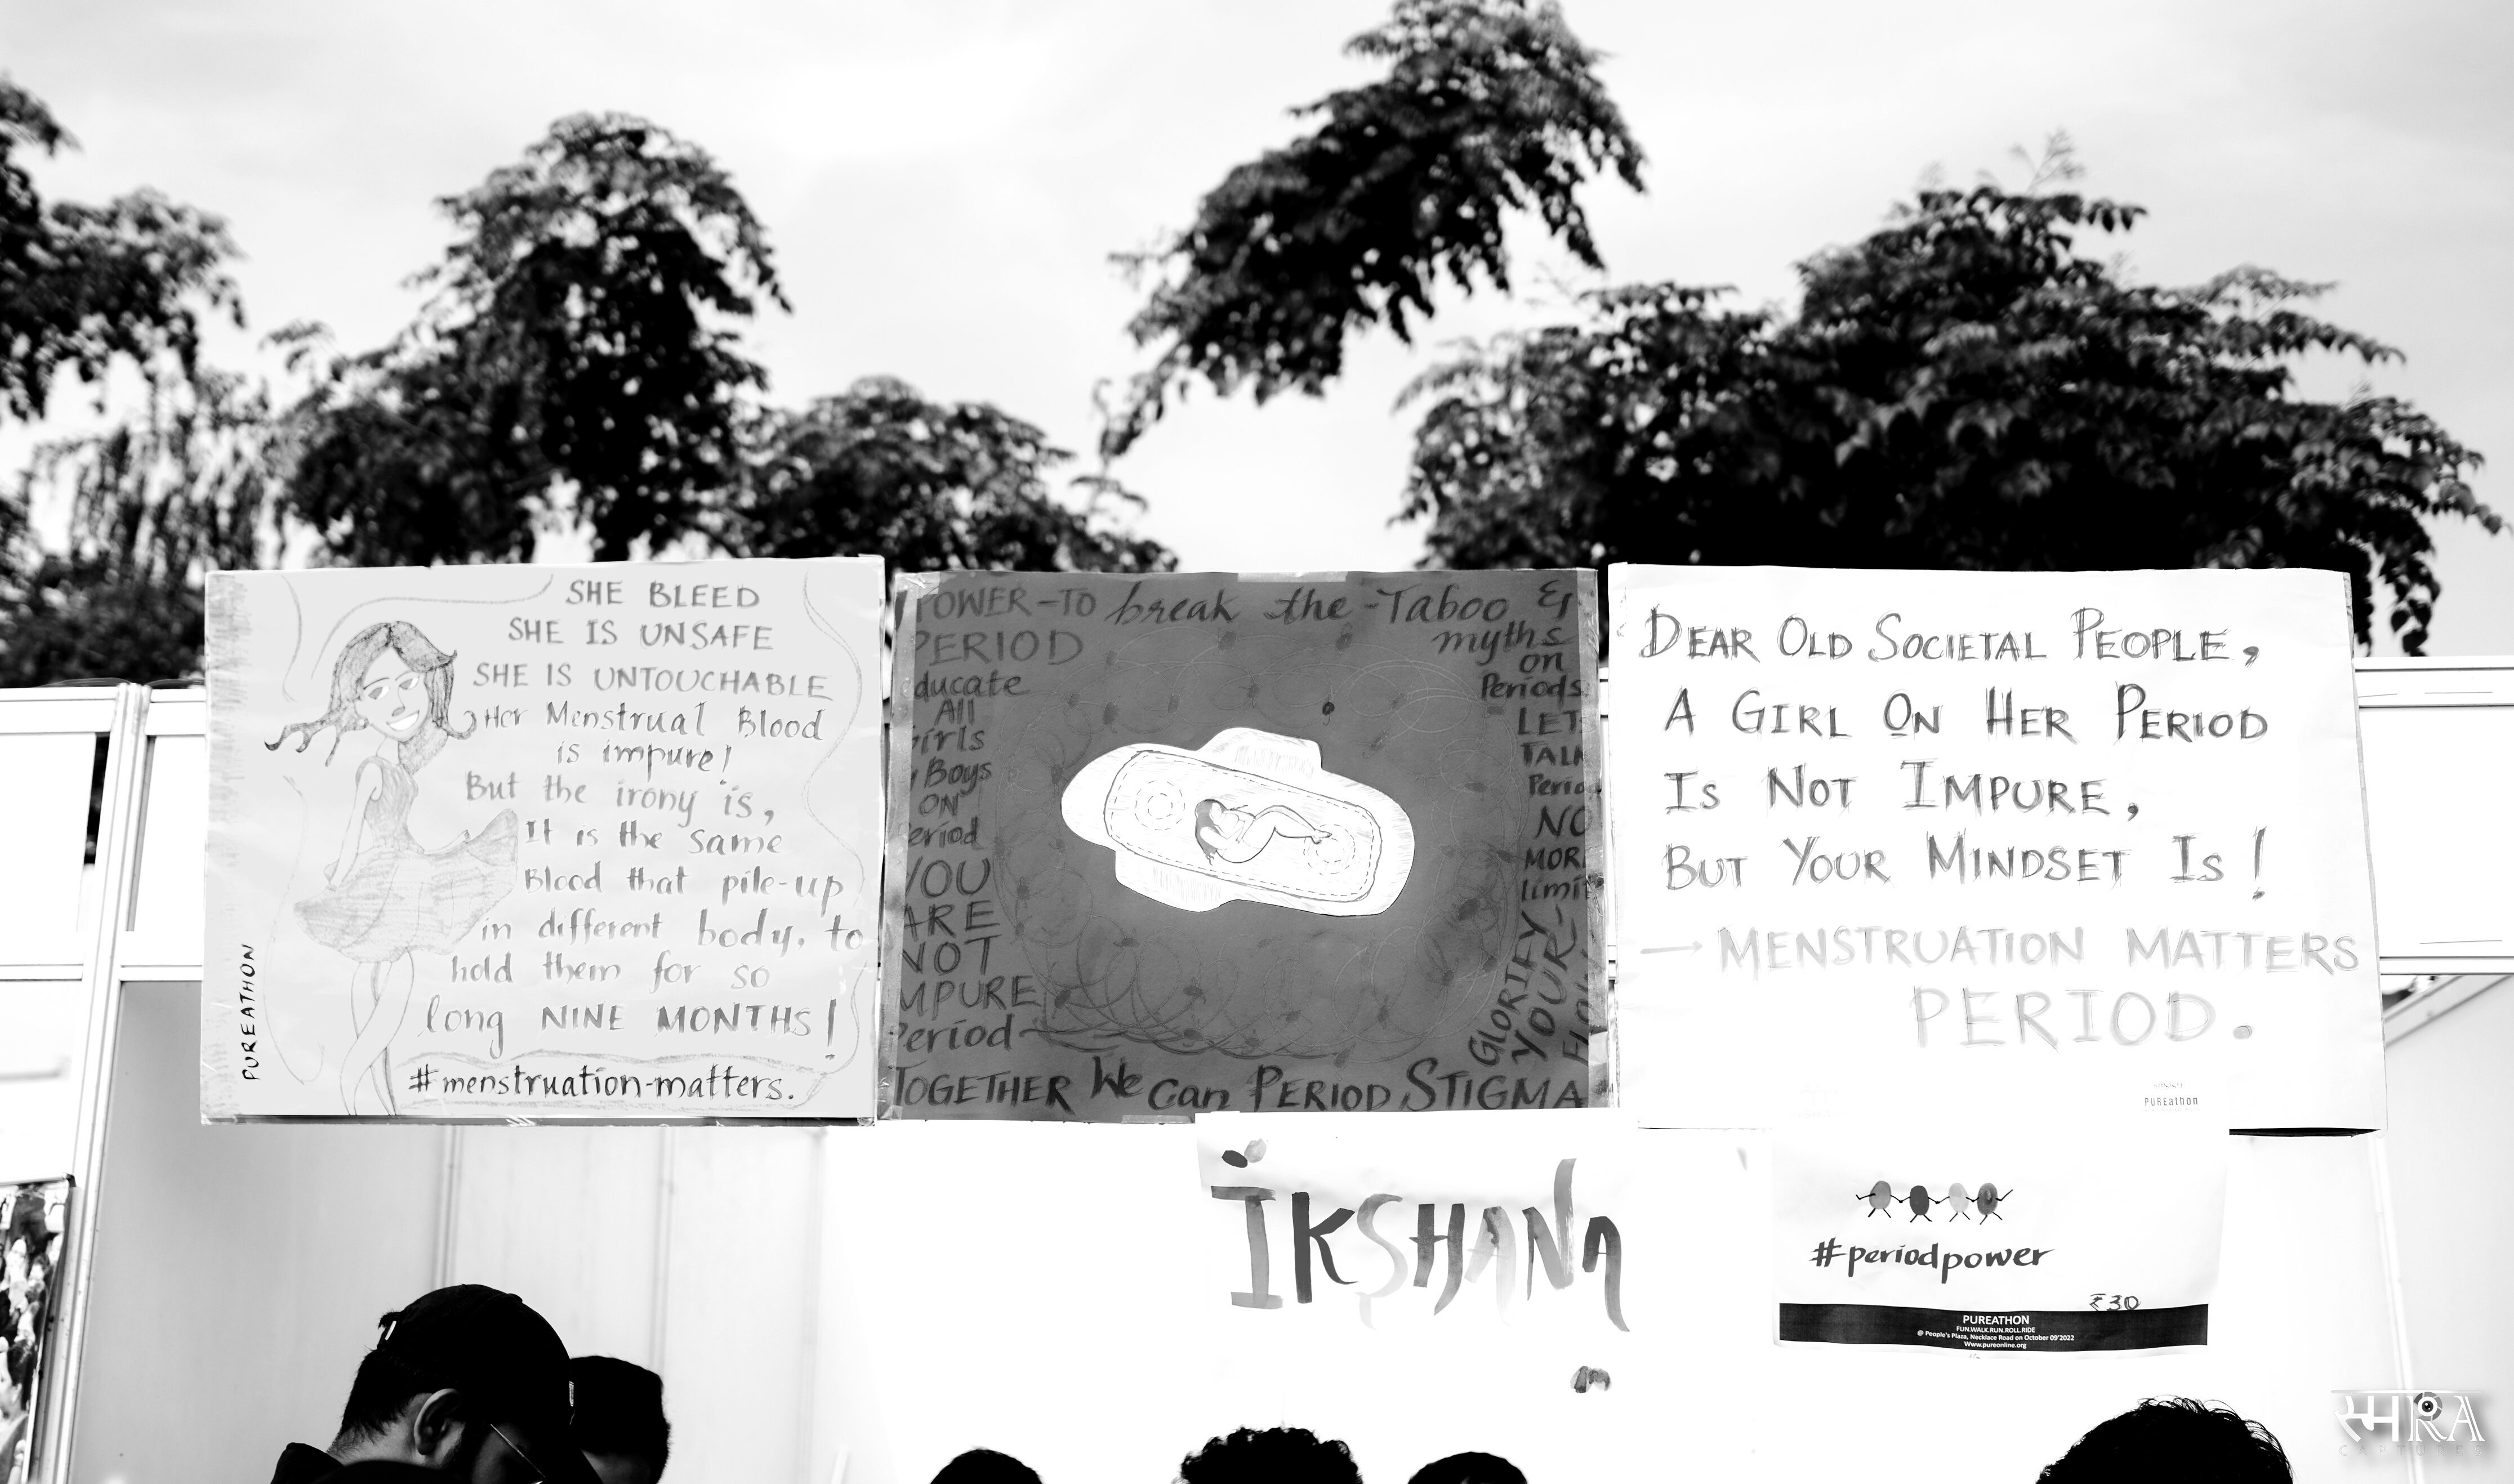 SHE BLEED
SHE IS UNSAFE
SHE IS UNTOUCHABLE
Her Menstrual Blood
is impure!
But the irony is,
It is the same
Blood that pile-up
in different body, to
hold them for so
long NINE MONTHS!
#menstruation-matters.
PUREATHON
POWER-TO break the-Taboo &
myths
on
Periods
PERIOD
ducate
All
irls
Boys
ON
eriod
YOU
ARE
NOT
MPURE
Period
LET
TALK
Perio
NO
MOR
limi
GLORIFY
YOUR-
FLOW
TOGETHER We Can PERIOD STIGMA
DEAR OLD SOCIETAL PEOPLE,
A GIRL ON HER PERIOD
IS NOT IMPURE,
BUT YOUR MINDSET IS!
→ MENSTRUATION MATTERS
PERIOD.
PUREathon
IKSHANA
#periodpower
₹30
PUREATHON
FUN.WALK.RUN.ROLL.RIDE
@ People's Plaza, Necklace Road on October 09'2022
Www.pureonline.org